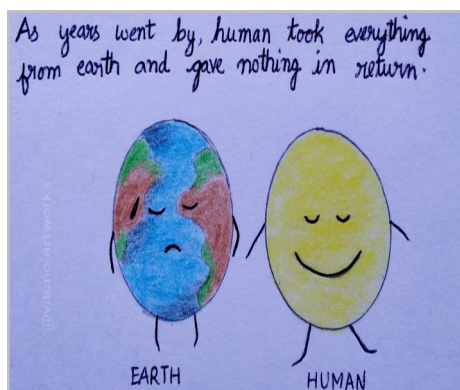 As years went by, human took everything
from earth and gave nothing in return.
EARTH
HUMAN